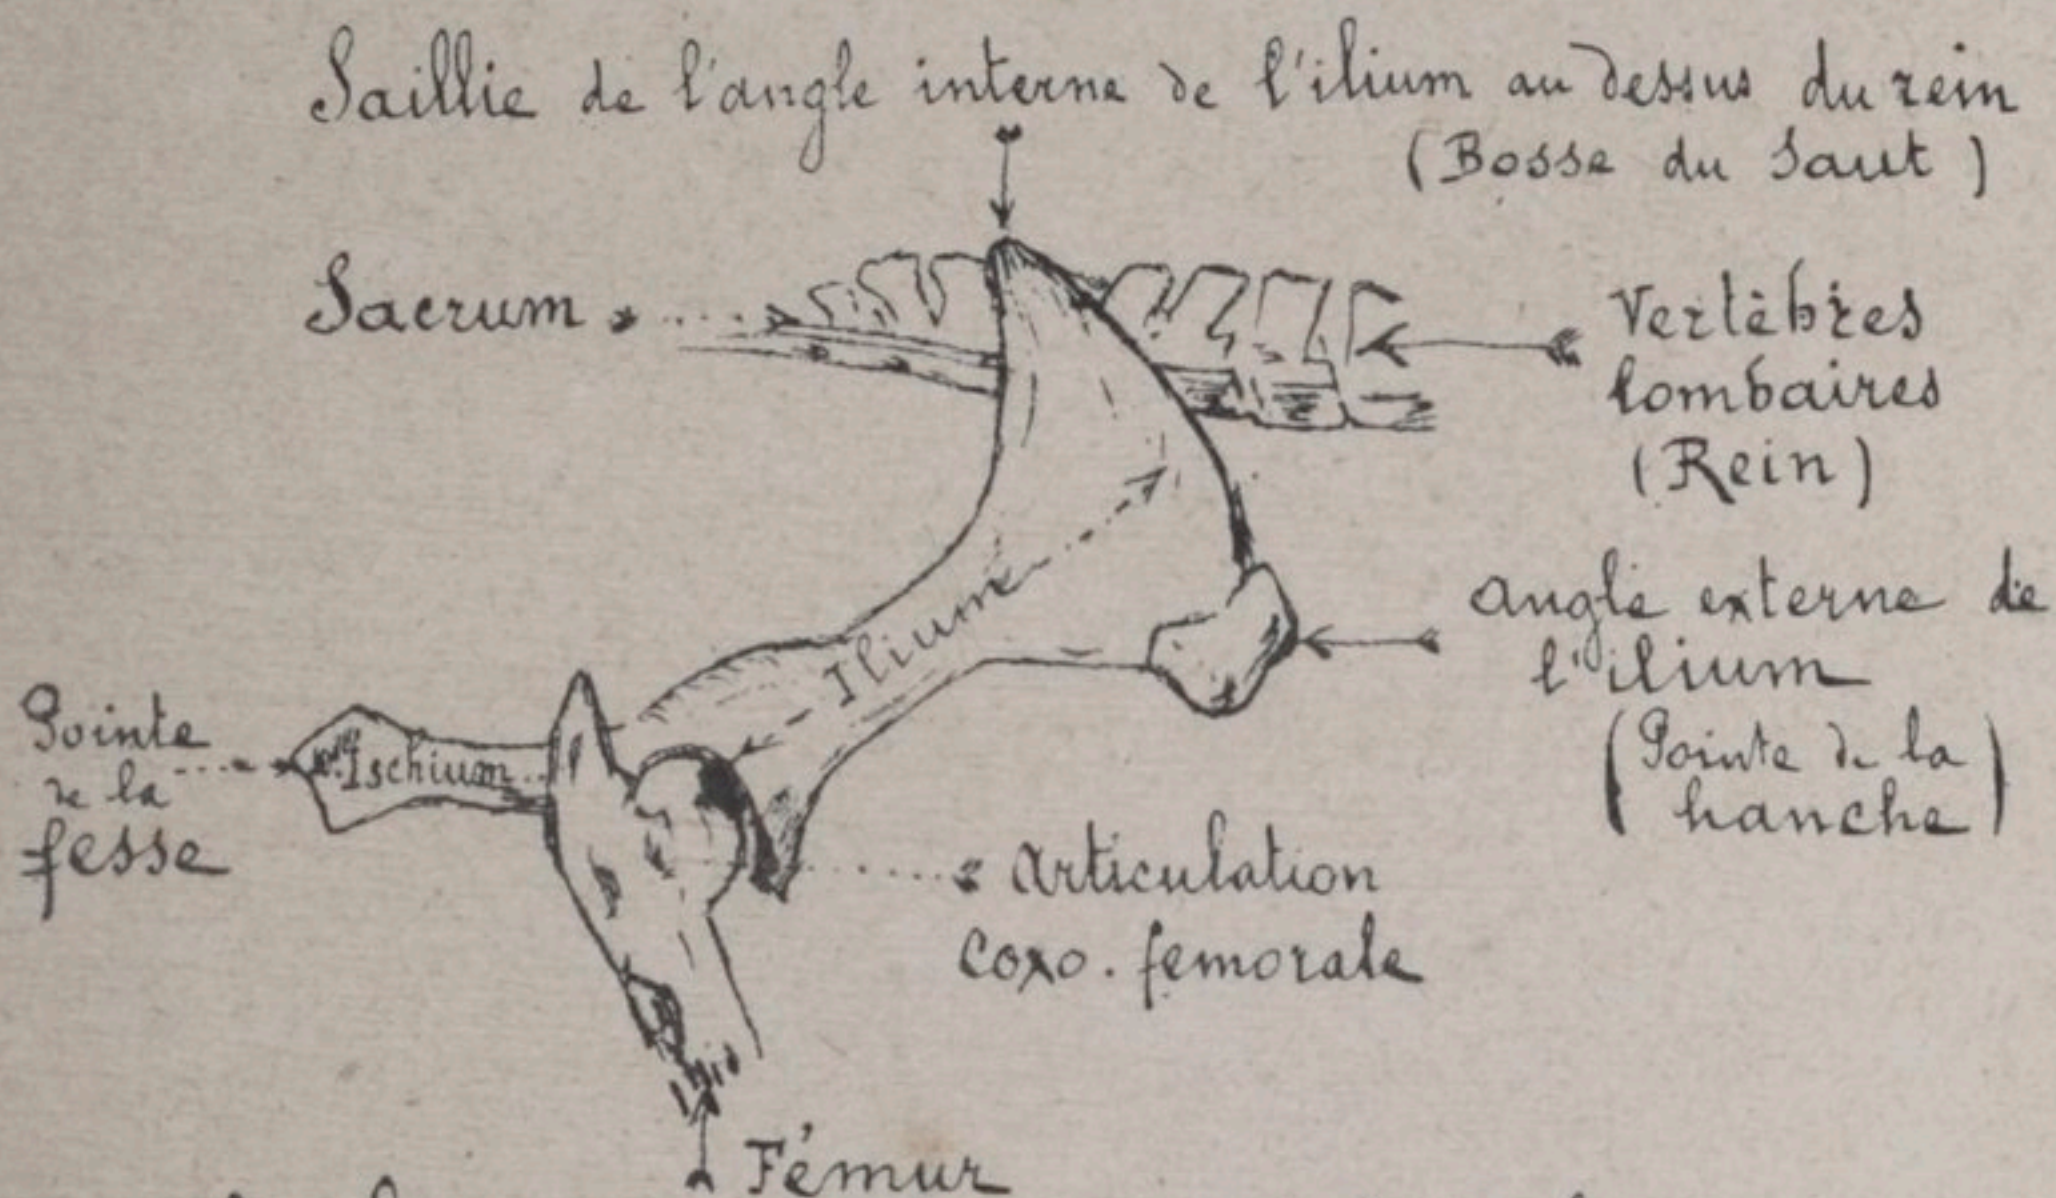 Saillie de l'angle interne de l'ilium au dessus du rein
(Bosse du Saut)
Sacrum
Vertèbres
lombaires
(Rein)
Ilium
angle externe de
l'ilium
(Pointe de la
hanche)
Pointe
de la
fesse
Ischium
articulation
Coxo. femorale
Fémur